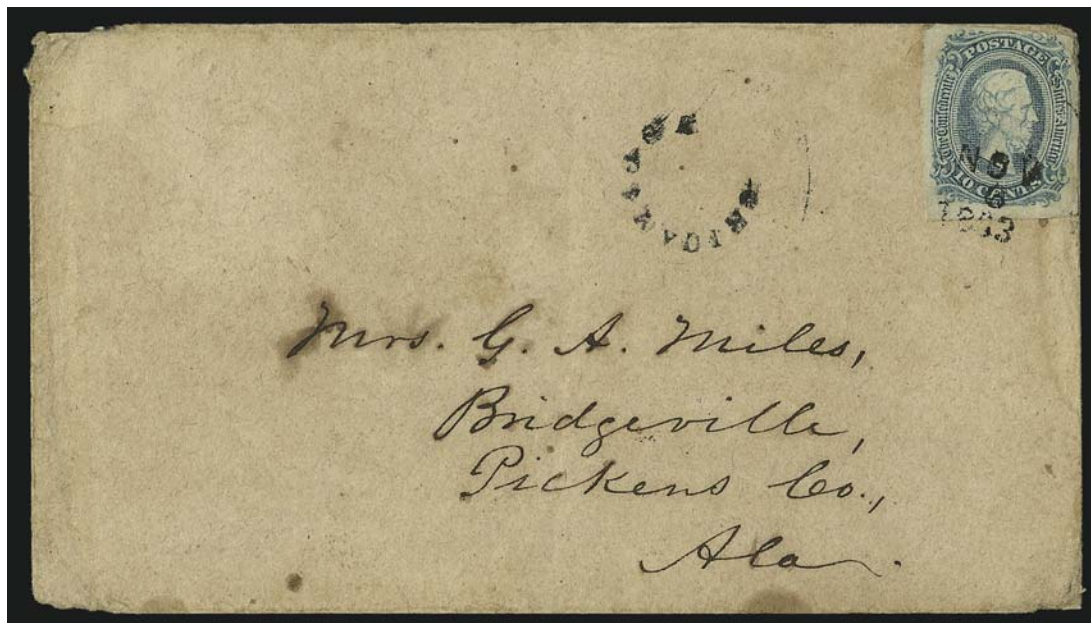 POSTAGE
The Confederate States of America
10 CENTS
NOV
6
1863
Mrs. G. A. Miles,
Bridgeville,
Pickens Co.,
Ala.